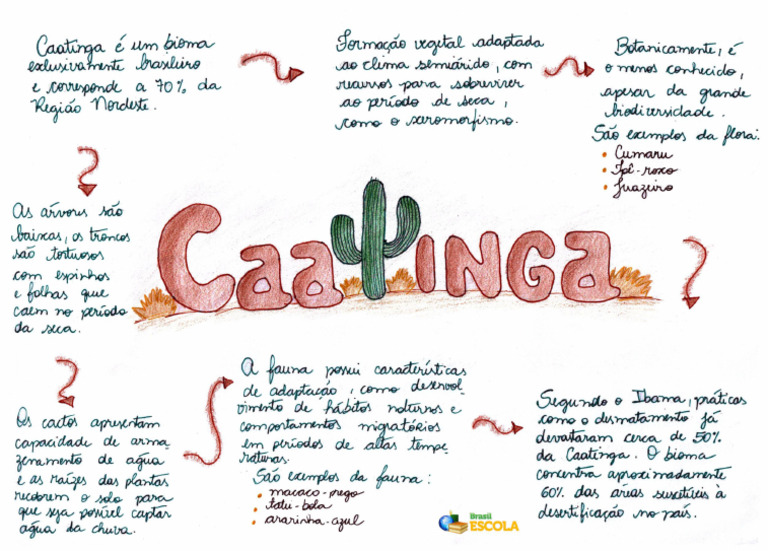 Caatinga é um bioma
exclusivamente brasileiro
e corresponde a 70% da
Região Nordeste.
Formação vegetal adaptada
ao clima semiárido, com
recursos para sobreviver
ao período de seca,
como o xeromorfismo.
Botanicamente, é
o menos conhecido,
apesar da grande
biodiversidade.
São exemplos da flora:
• Cumaru
• Ipê-roxo
• Juazeiro
As árvores são
baixas, os troncos
são tortuosos
com espinhos
e folhas que
caem no período
da seca.
CaaTINGa
Os cactos apresentam
capacidade de arma-
zenamento de água
e as raízes das plantas
recobrem o solo para
que seja possível captar
água da chuva.
A fauna possui características
de adaptação, como desenvol-
vimento de hábitos noturnos e
comportamentos migratórios
em períodos de altas tempe-
raturas.
São exemplos da fauna:
• macaco-prego
• tatu-bola
• ararinha-azul
Segundo o Ibama, práticas
como o desmatamento já
devastaram cerca de 50%
da Caatinga. O bioma
concentra aproximadamente
60% das áreas suscetíveis à
desertificação no país.
Brasil
ESCOLA